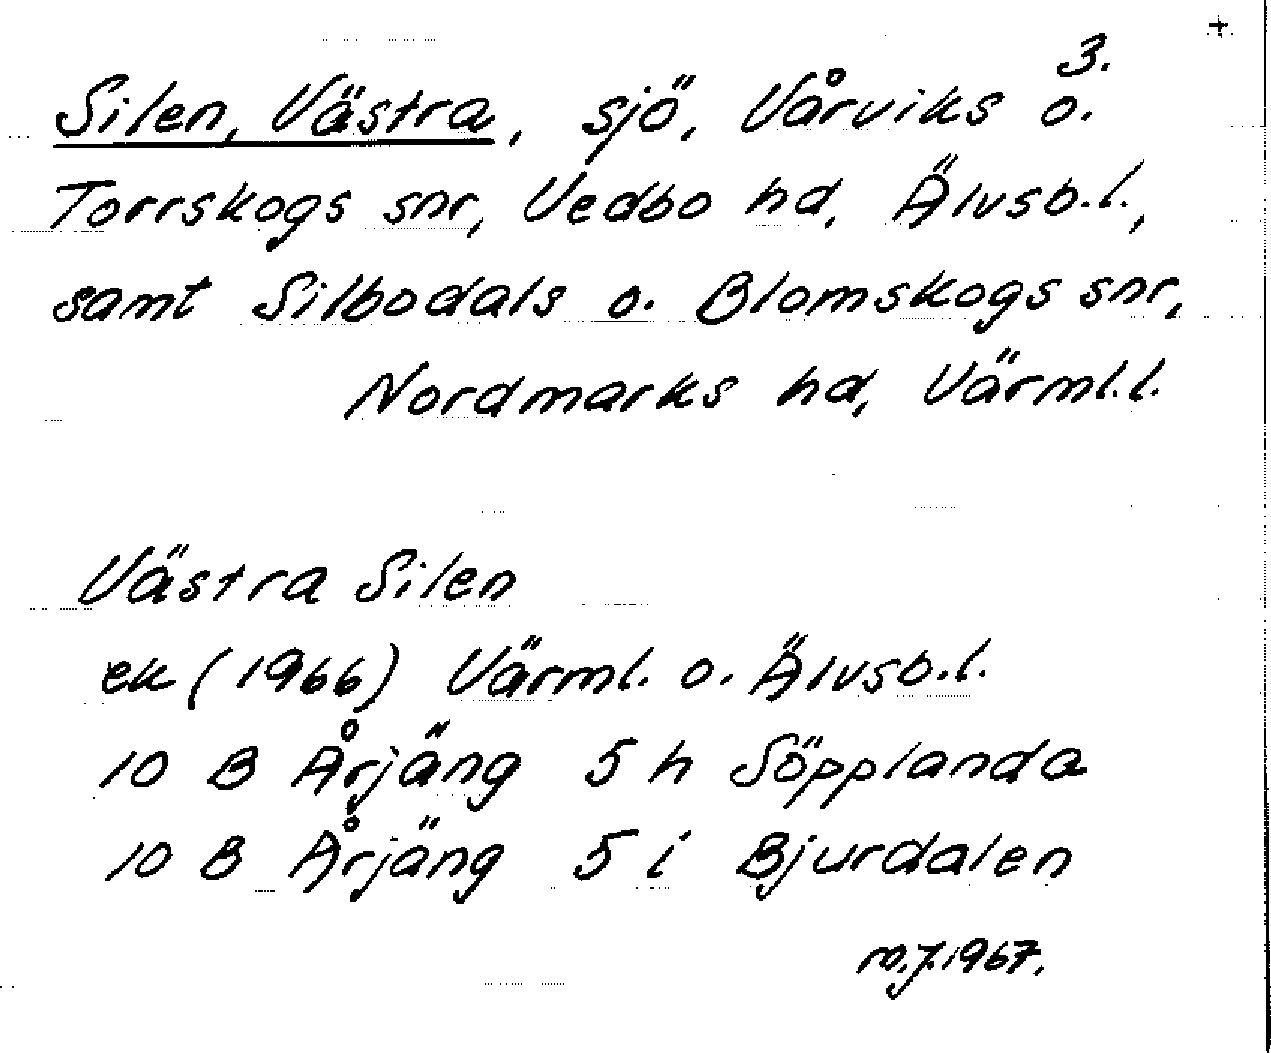 +
3.
Silen, Västra, sjö, Vårviks o.
Torrskogs snr, Vedbo hd, Älvsb.l.,
samt Silbodals o. Blomskogs snr,
Nordmarks hd, Värml.l.
Västra Silen
ek (1966) Värml. o. Älvsb.l.
10 B Årjäng 5 h Söpplanda
10 B Årjäng 5 i Bjurdalen
1967.